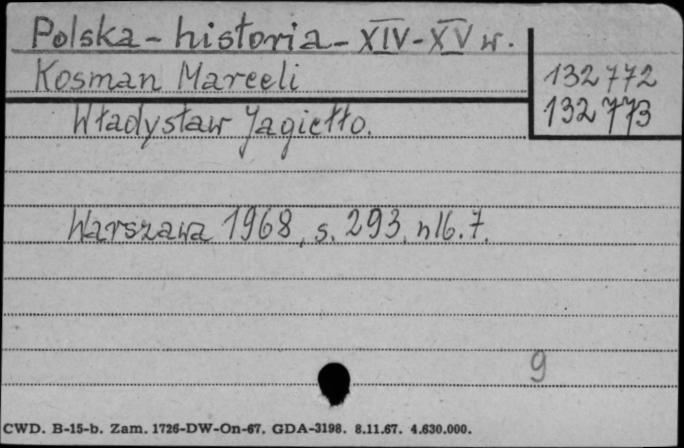 Polska - historia - XIV-XV w.
Kosman Marceli
132772
132773
Władysław Jagiełło.
Warszawa 1968, s. 293, nlb. 7.
9
CWD. B-15-b. Zam. 1726-DW-On-67. GDA-3198. 8.11.67. 4.630.000.